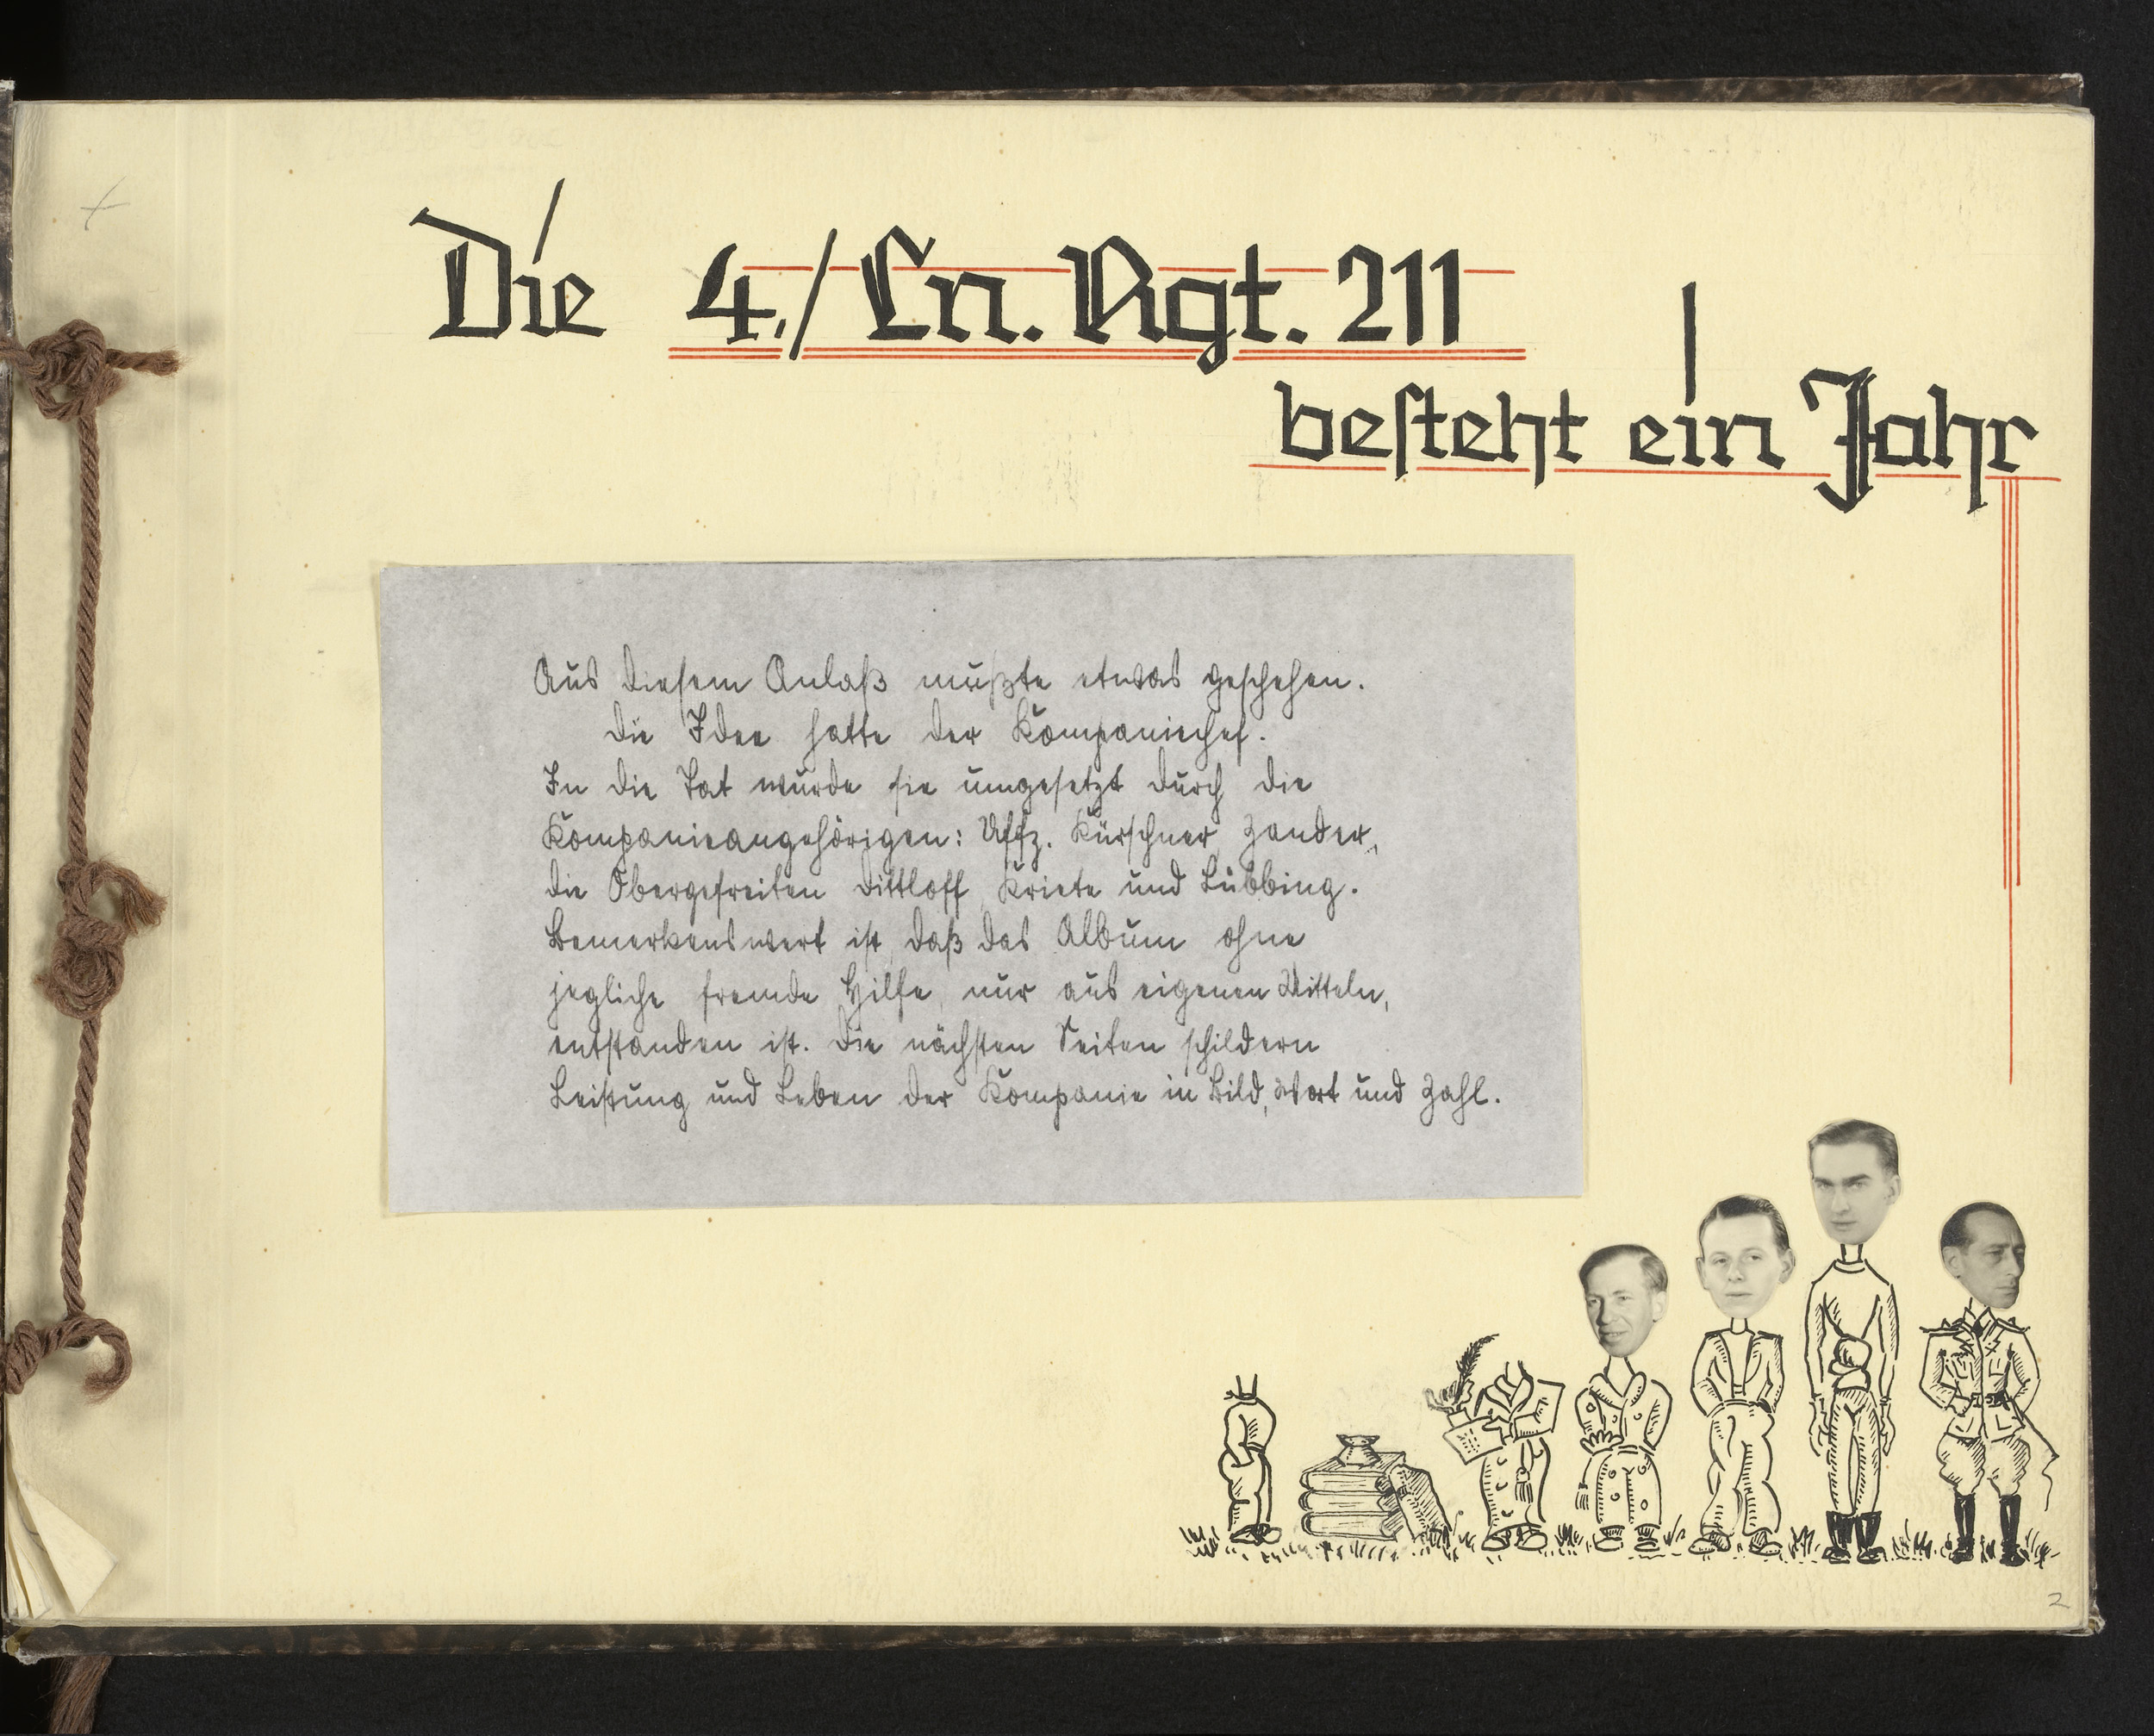 Die 4./Ln. Rgt. 211
besteht ein Jahr
Aus diesem Anlaß mußte etwas geschehen.
Die Idee hatte der Kompaniechef.
In die Tat wurde sie umgesetzt durch die
Kompanieangehörigen: Uffz. Kürschner, Zander,
die Obergefreiten Dittloff, Kriete und Lübbing.
Bemerkenswert ist, daß das Album ohne
jegliche fremde Hilfe, nur aus eigenen Mitteln,
entstanden ist. Die nächsten Seiten schildern
Leistung und Leben der Kompanie in Bild, Wort und Zahl.
2